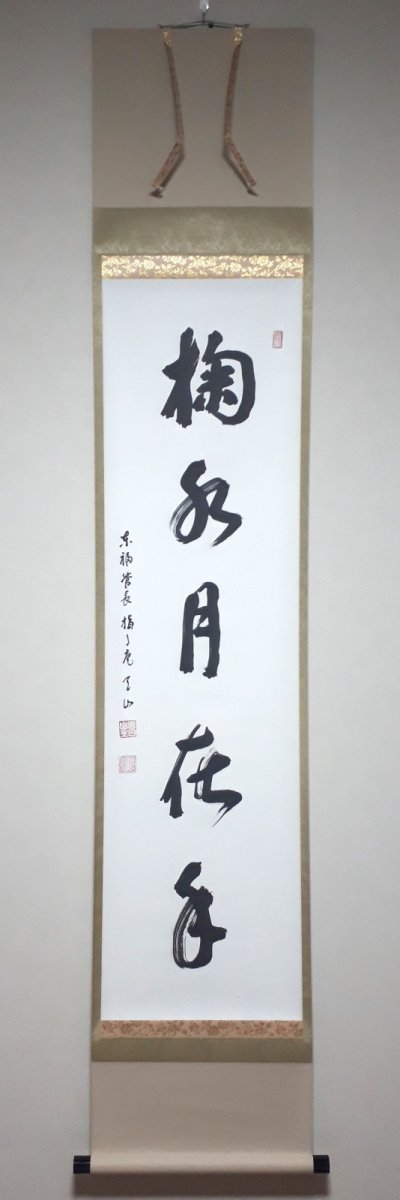 掬水月在手
東福管長